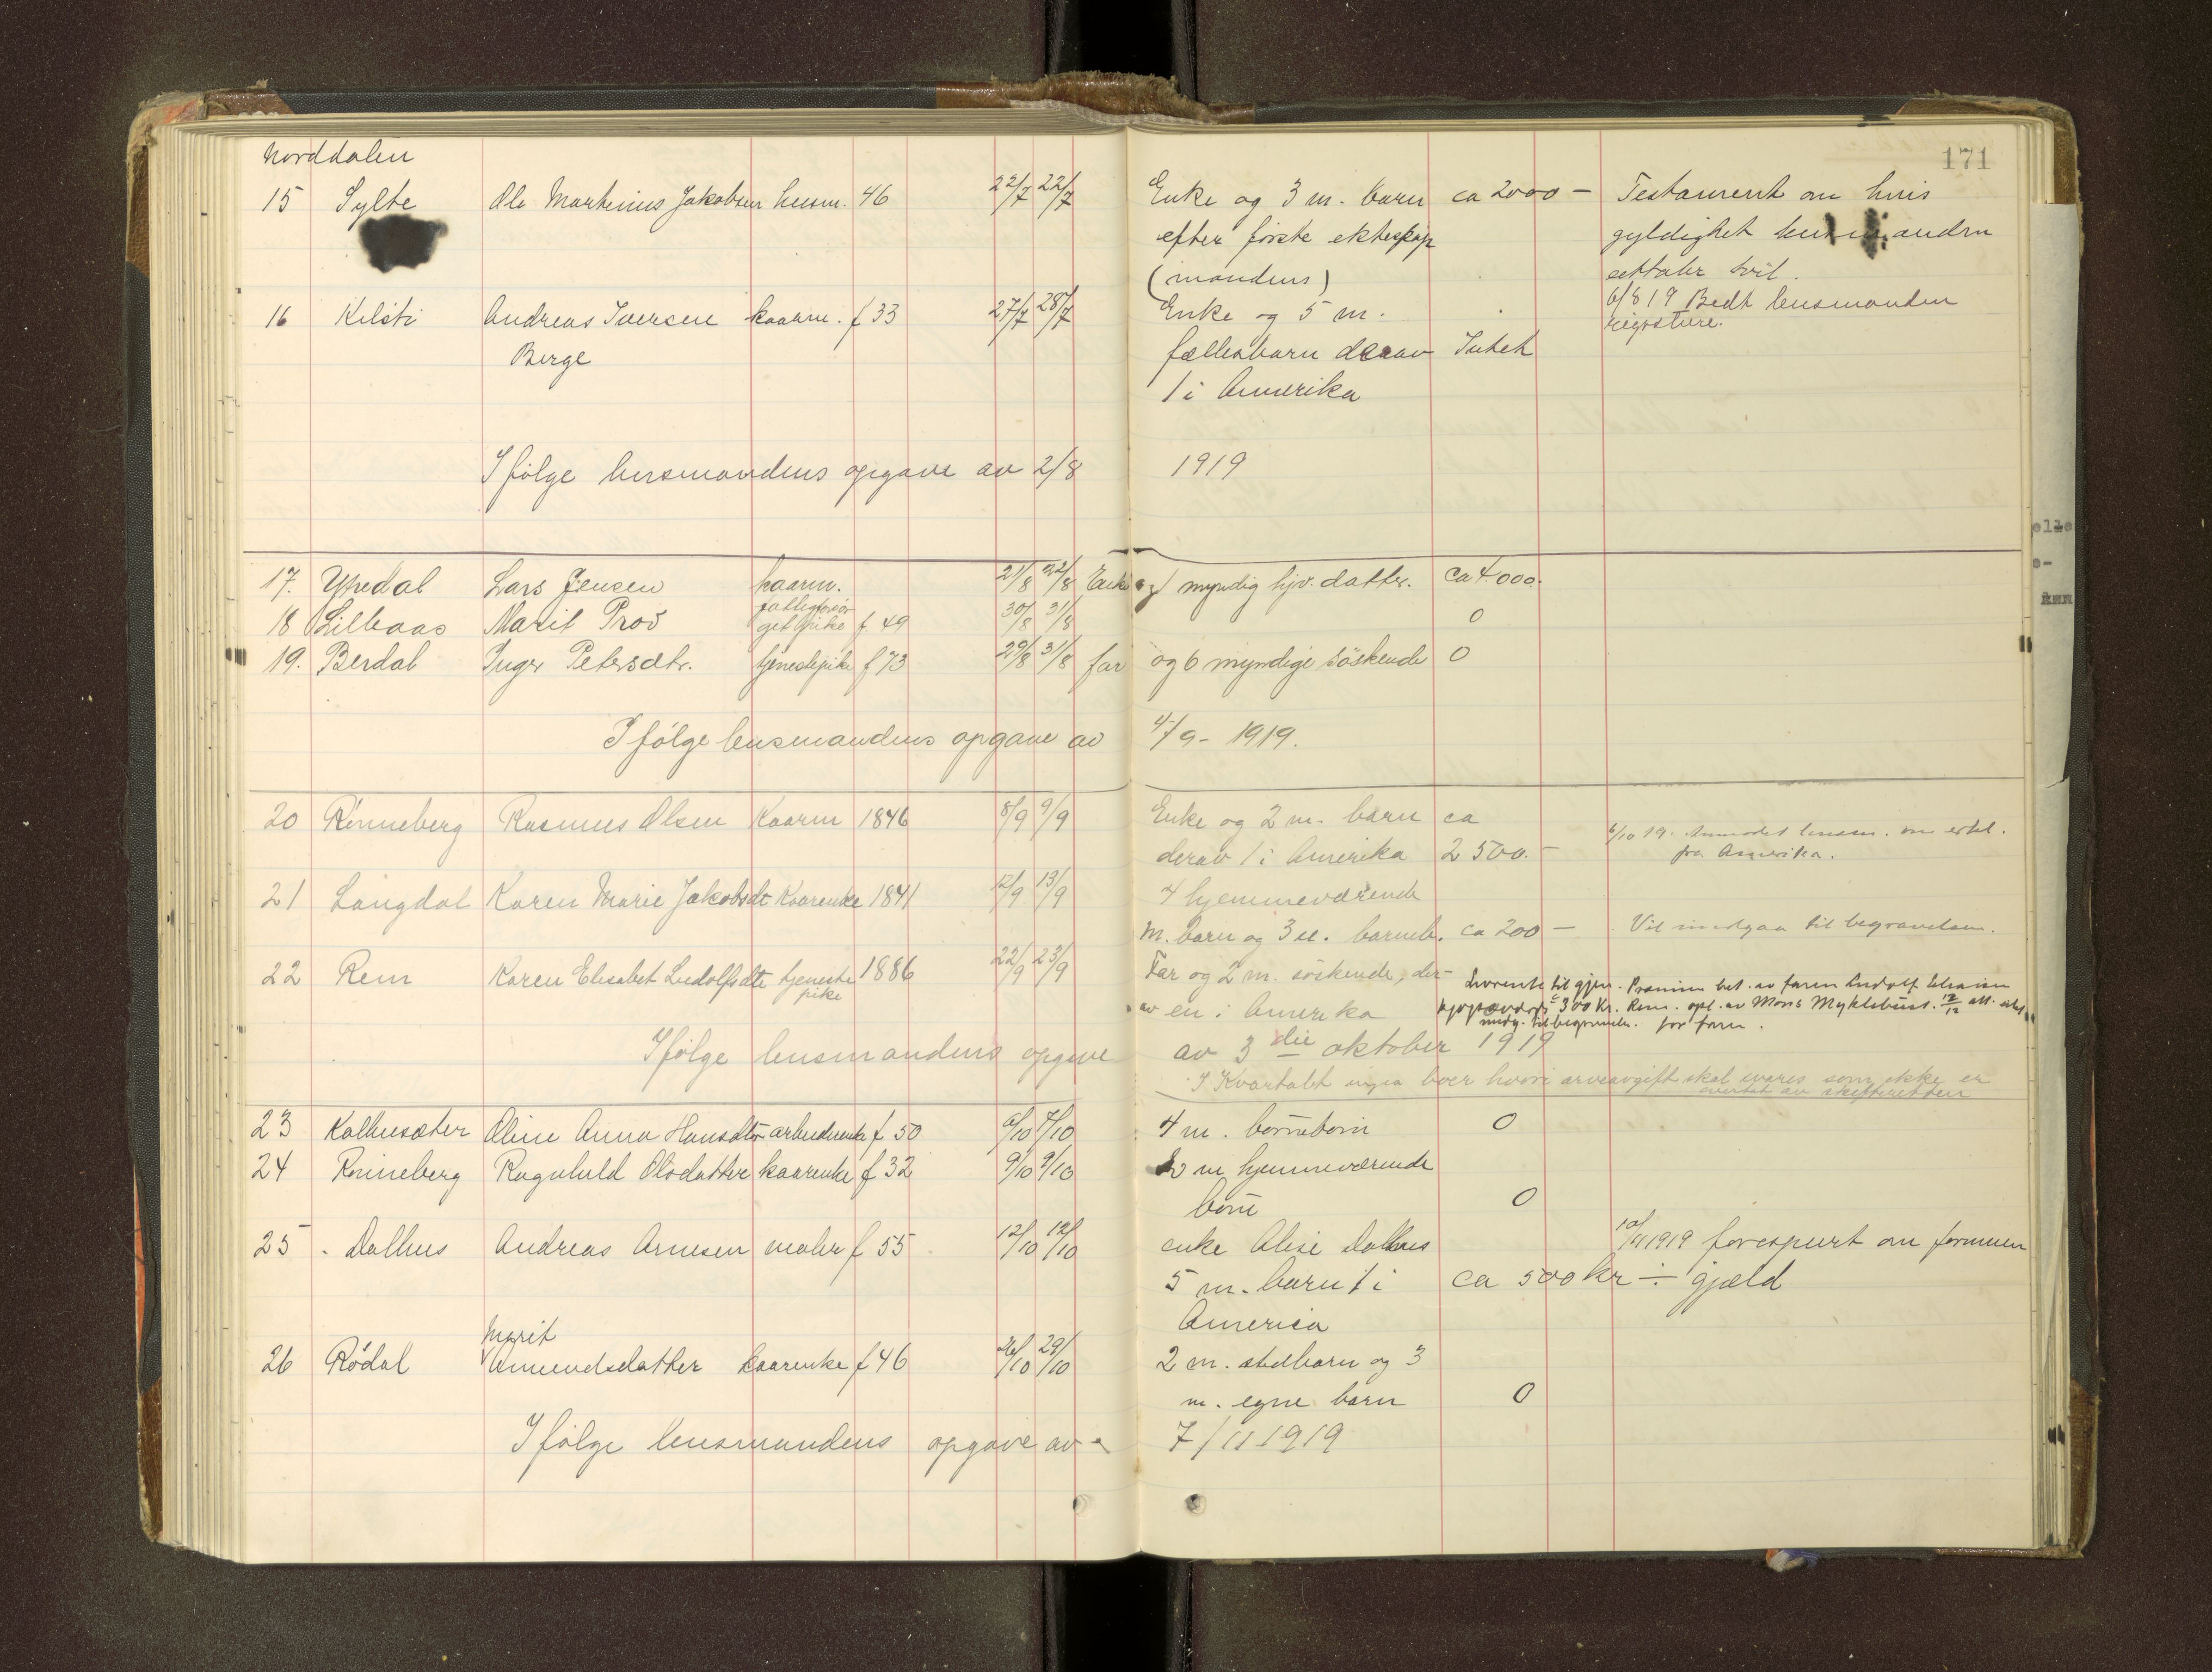 171
Norddalen
15 Sylte Ole Martinius Jakobsen husm. 46 22/7 22/7 Enke og 3 m. barn ca 2000 - Testament om hvis
efter første ekteskap gyldighet andre
(mandens) tvil.
6/8 19 Bedt lensmanden
registrere.
16 Kilsti Andreas Iversen kaarm. f 33 27/7 28/7 Enke og 5 m.
Berge fællesbarn derav Intet
1 i Amerika
Ifölge lensmandens opgave av 2/8 1919
17. Ytredal Lars Jensen kaarm. 21/8 22/8 Enke og 1 myndig hjv. datter. ca 4000.
18 Lillebaas Marit Pros fattigforsör
get pike f. 49 30/8 31/8 0
19. Berdal Inger Petersdtr. tjenestepike f 73 29/8 31/8 far og 6 myndige söskende 0
Ifölge lensmandens opgave av 4/9 - 1919.
20 Rönneberg Rasmus Olsen Kaarm 1846 8/9 9/9 Enke og 2 m. barn ca
derav 1 i Amerika 2500.-
6/10 19. Anmodet lensm. om erkl.
fra Amerika.
21 Langdal Karen Marie Jakobsdt Kaarenke 1841 12/9 13/9 4 hjemmeværende
m. barn og 3 u. barneb. ca 200 - Vil medgaa til begravelsen.
22 Rem Karen Elisabet Ludolfsdt tjeneste
pike 1886 22/9 23/9 Far og 2 m. söskende, der-
av en i Amerika
til gjen. Præmien bet. av faren Ludolf
300 Kr. Rem. opl. av Mons Myklebust. 12/12
medg. til begravelse. for faren.
Ifölge lensmandens opgave av 3die oktober 1919
I Kvartalet ingen boer hvori arveavgift skal svares som ikke er
overtat av skifteretten
23 Kalhusæter Oline Anna Hansdtr arbeiderenke f 50 6/10 7/10 4 m. börneborn 0
24 Rönneberg Ragnhild Olsdatter kaarenke f 32 9/10 9/10 m hjemmeværende
börn 0
25 - Dalhus Andreas Arnesen maler f 55 12/10 12/10 enke Alise Dalhus 10/11 1919 forespurt om formuen
5 m. barn 1 i ca 500 kr ÷ gjæld
America
26 Rödal Marit
Amundsdatter kaarenke f 46 26/10 29/10 2 m. stedbarn og 3
m. egne barn 0
Ifölge lensmandens opgave av 7/11 1919
elle
e-